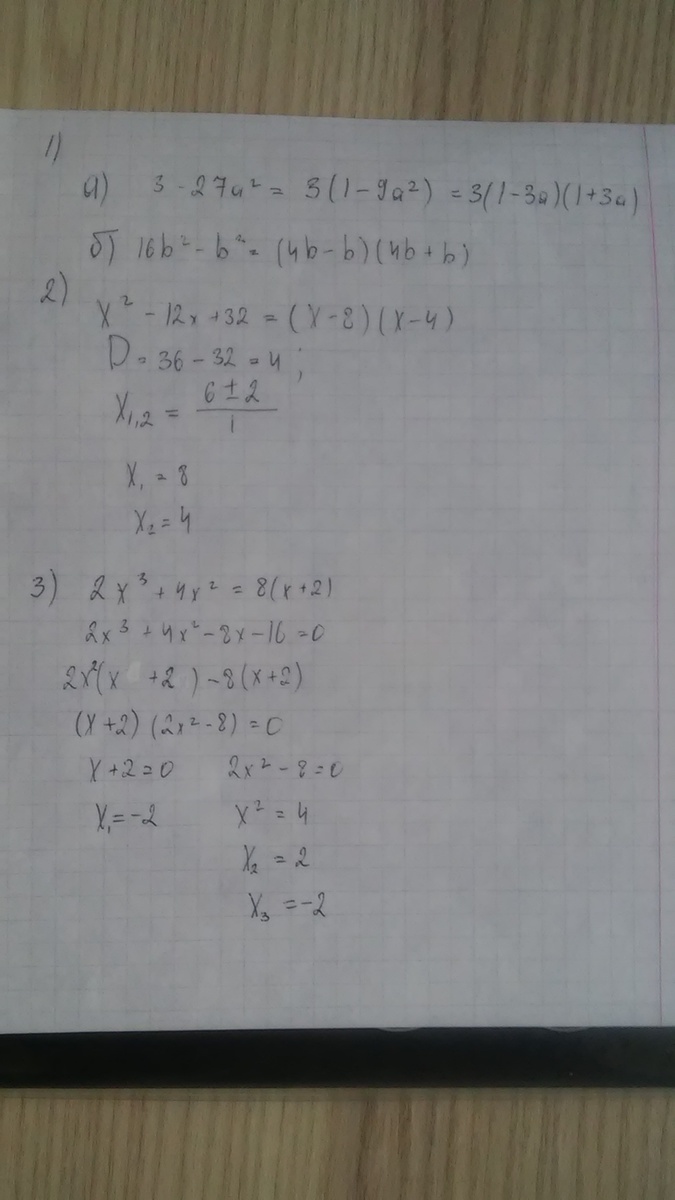 1)
а) 3 - 27a² = 3(1 - 9a²) = 3(1-3a)(1+3a)
б) 16b² - b = (4b - b)(4b + b)
2)
x² - 12x + 32 = (x - 8)(x - 4)
D = 36 - 32 = 4;
x₁,₂ = (6 ± 2)/1
x₁ = 8
x₂ = 4
3) 2x³ + 4x² = 8(x+2)
2x³ + 4x² - 8x - 16 = 0
2x²(x + 2) - 8(x+2)
(x+2)(2x² - 8) = 0
x + 2 = 0 2x² - 8 = 0
x₁ = -2 x² = 4
x₂ = 2
x₃ = -2